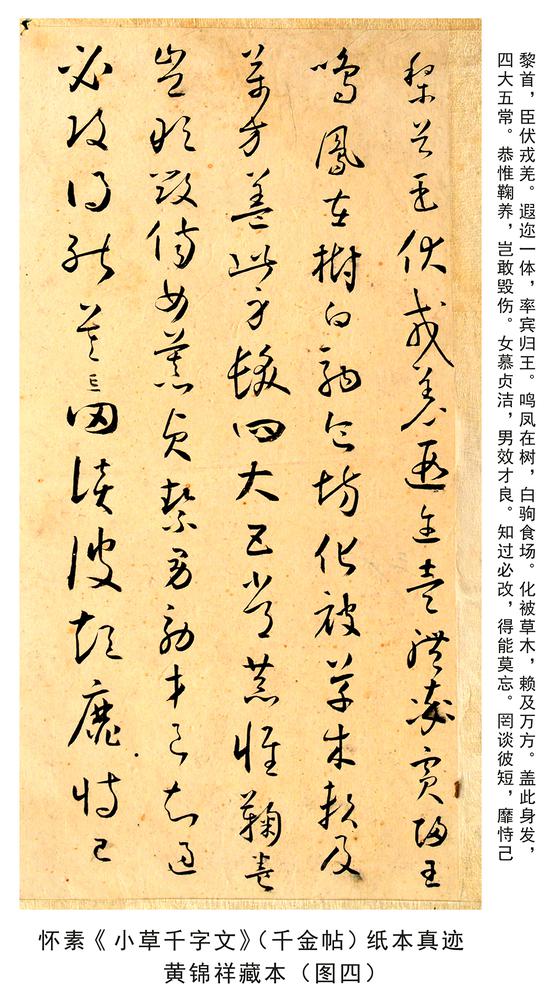 黎首，臣伏戎羌。遐迩一体，率宾归王。鸣凤在树，白驹食场。化被草木，赖及万方。盖此身发，
四大五常。恭惟鞠养，岂敢毁伤。女慕贞洁，男效才良。知过必改，得能莫忘。罔谈彼短，靡恃己
黎首臣伏戎羌遐迩壹體率賓歸王
鳴鳳在樹白駒食場化被草木賴及
萬方蓋此身髮四大五常恭惟鞠養
豈敢毀傷女慕貞絜男效才良知過
必改得能莫忘罔談彼短靡恃己
怀素《小草千字文》（千金帖）纸本真迹
黄锦祥藏本（图四）